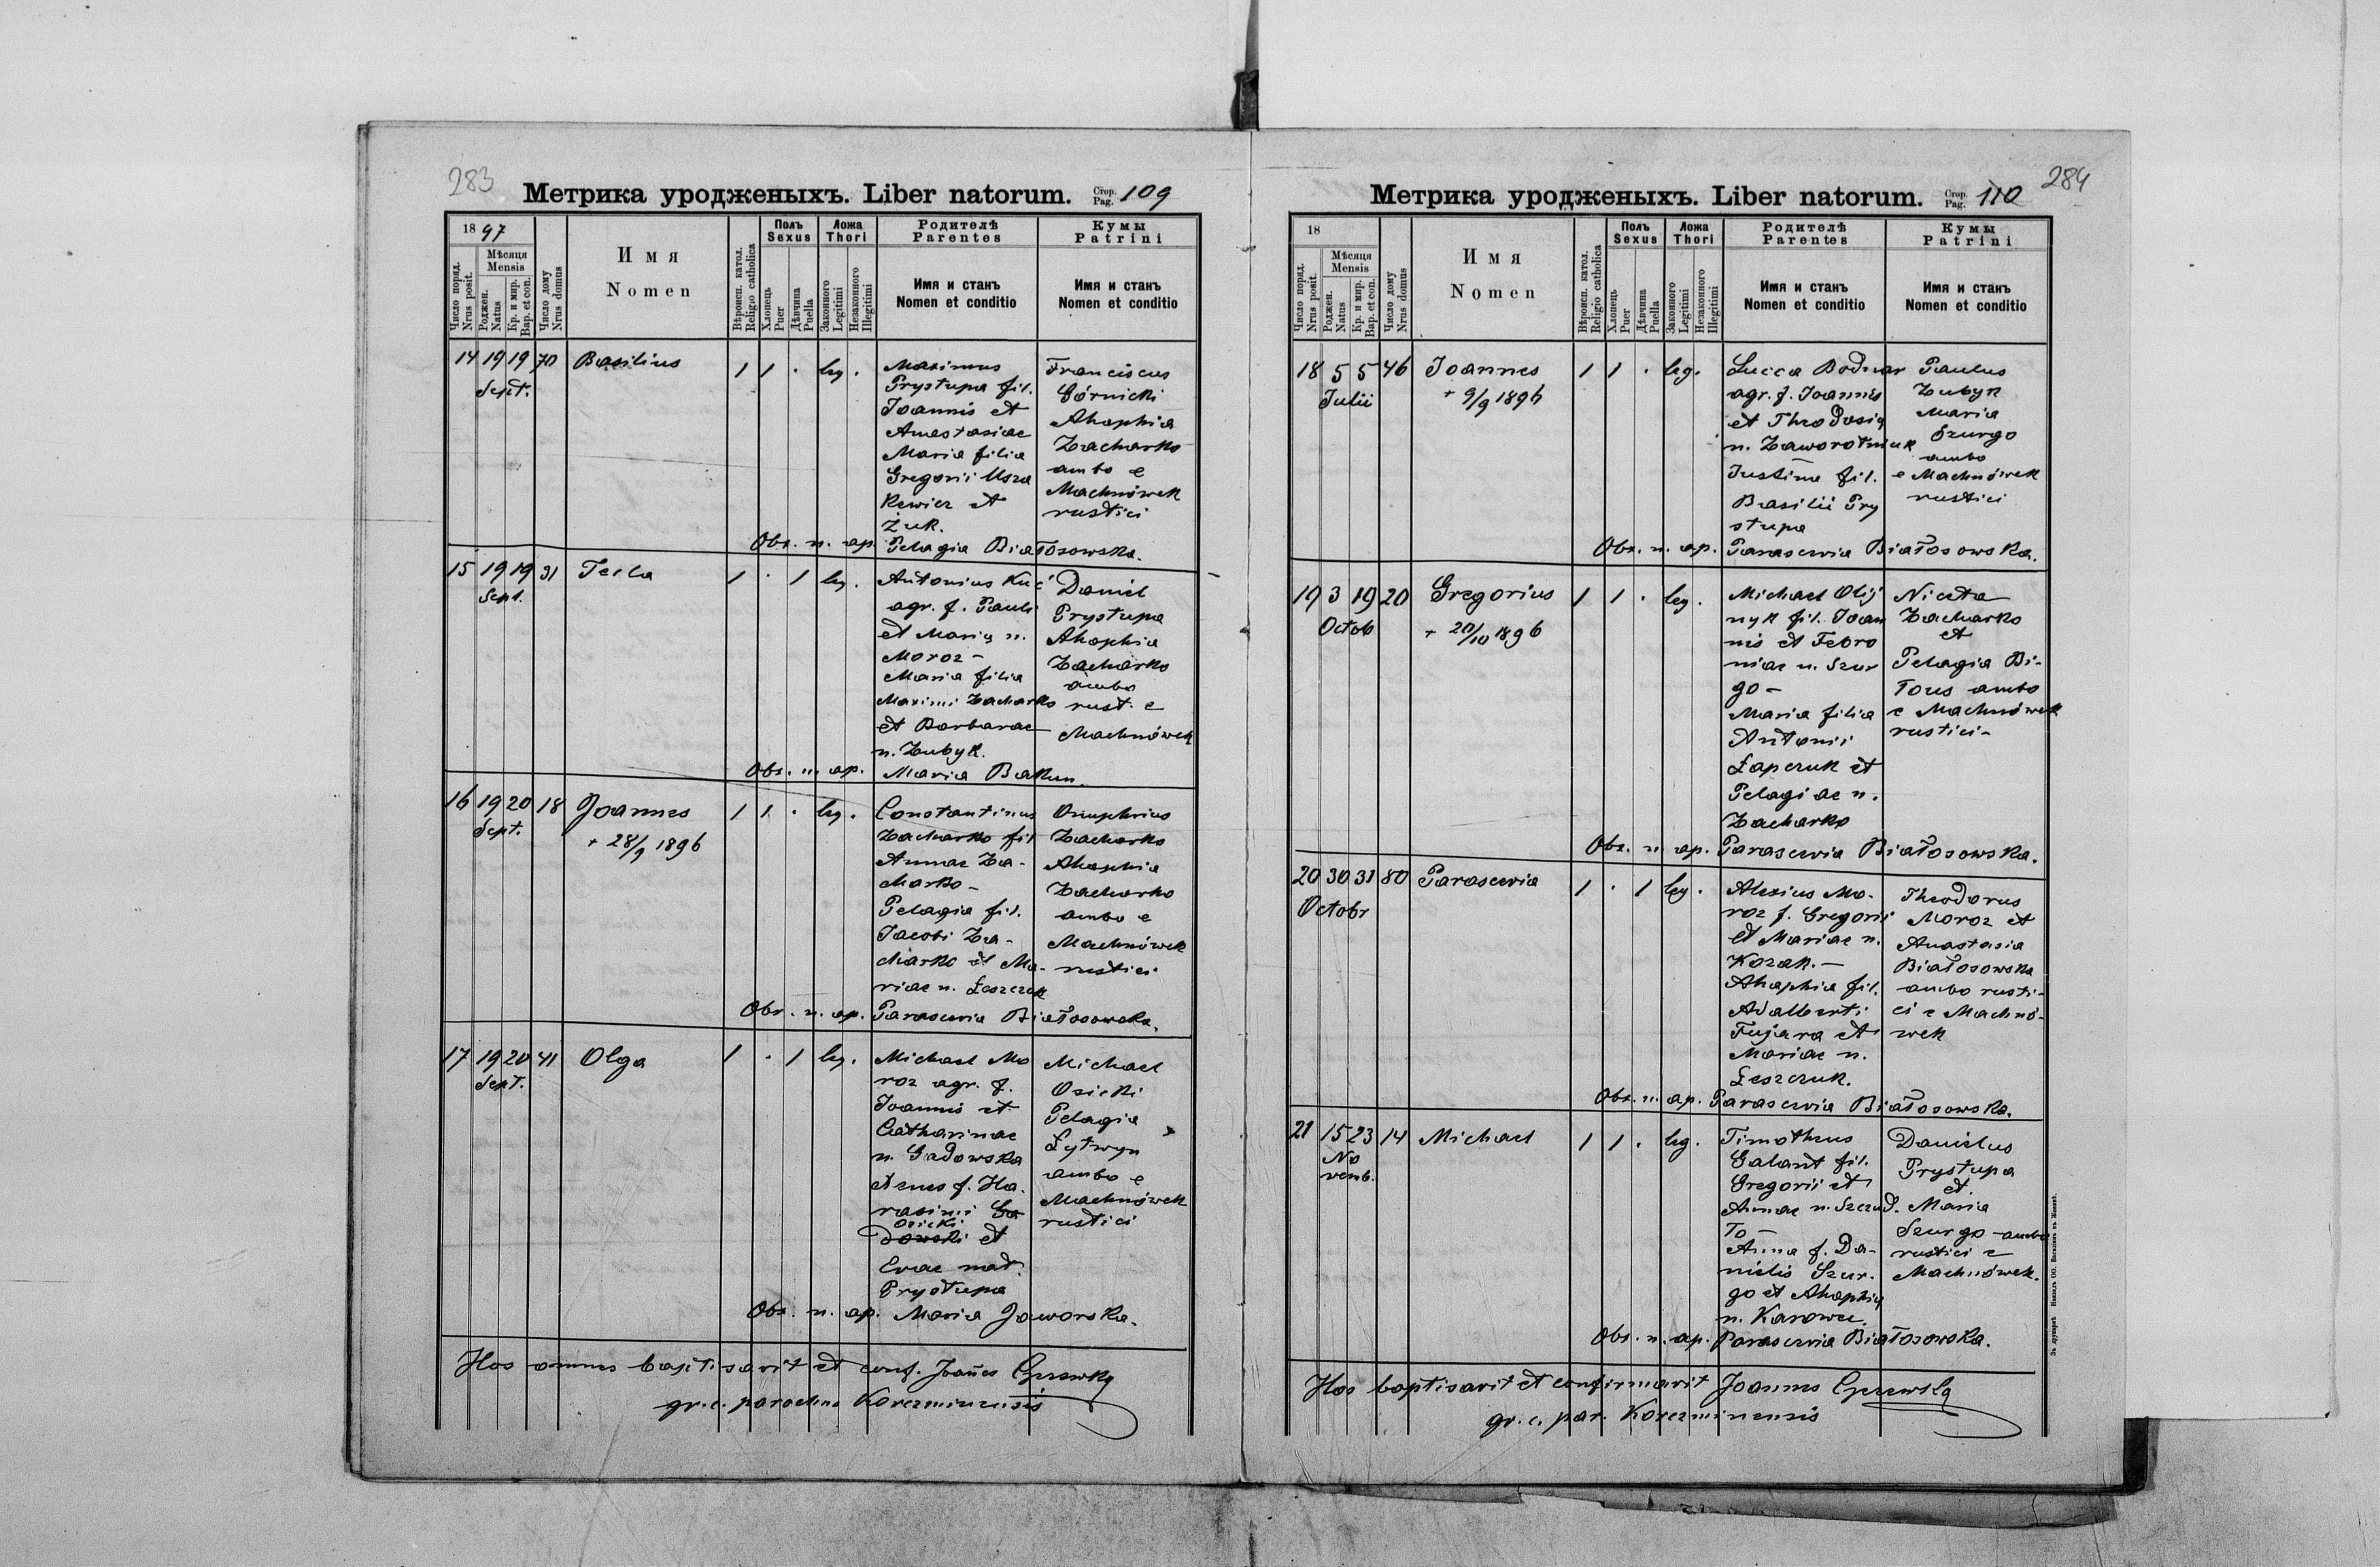 283
Метрика уродженыхъ. Liber natorum. Стор. Pag. 109
18 97
Число поряд. Nrus posit.
Мѣсяця Mensis
Роджен. Natus
Кр. и мир. Bap. et con.
Число дому Nrus domus
Имя
Nomen
Вѣроисп. катол. Religio catholica
Полъ Sexus
Хлопець Puer
Дѣвчина Puella
Ложа Thori
Законного Legitimi
Незаконного Illegitimi
Родителѣ Parentes
Имя и станъ
Nomen et conditio
Кумы Patrini
Имя и станъ
Nomen et conditio
14 19 19 70 Basilius 1 1 · leg.
Sept.
Maximus
Prystupa fil.
Joannis et
Anastasiae
Maria filia
Gregorii Usza
kewicz et
Żuk.
Franciscus
Górnicki
Ahaphia
Zacharko
ambo e
Machnówek
rustici
Obs. n. ap. Pelagia Białosowska.
15 19 19 31 Tecla 1 · 1 leg.
Sept.
Antonius Kuć
agr. f. Pauli
et Marię n.
Moroz –
Maria filia
Maximi Zacharko
et Barbarae
n. Zubyk.
Daniel
Prystupa
Ahaphia
Zacharko
ambo
rust. e
Machnówek
Obs. n. ap. Maria Bakun.
16 19 20 18 Joannes 1 1 · leg.
Sept.
+ 28/9 1896
Constantinus
Zacharko fil
Annae Za-
charko –
Pelagia fil.
Jacobi Za-
charko et Ma-
riae n. Leszczuk
Onuphrius
Zacharko
Ahaphia
Zacharko
ambo e
Machnówek
rustici
Obs. n. ap. Parascevia Białosowska.
17 19 20 41 Olga 1 · 1 leg.
Sept.
Michael Mo
roz agr. f.
Joannis et
Catharinae
n. Gadowska
f. Ha-
rasimi Ga
osicki
dowski et
Evae nad.
Prystupa
Michael
Osicki
Pelagia
Łytwyn
ambo e
Machnówek
rustici
Obs. n. ap. Maria Jaworska.
Hos omnes baptisavit et conf. Joannes
gr. c. parochus Korczminensis
284
Метрика уродженыхъ. Liber natorum. Стор. Pag. 110
18
Число поряд. Nrus posit.
Мѣсяця Mensis
Роджен. Natus
Кр. и мир. Bap. et con.
Число дому Nrus domus
Имя
Nomen
Вѣроисп. катол. Religio catholica
Полъ Sexus
Хлопець Puer
Дѣвчина Puella
Ложа Thori
Законного Legitimi
Незаконного Illegitimi
Родителѣ Parentes
Имя и станъ
Nomen et conditio
Кумы Patrini
Имя и станъ
Nomen et conditio
18 5 5 46 Joannes 1 1 · leg.
Julii
+ 9/9 1896
Lucca Bodnar
agr. f. Joannis
et Theodosię
n. Zaworotniuk
Justina fil.
Basilii Pry
stupa
Paulus
Zubyk
Maria
Szurgo
ambo
e Machnówek
rustici
Obs. n. ap. Parascevia Białosowska.
19 3 19 20 Gregorius 1 1 · leg.
Octob
+ 20/10 1896
Michael Olij
nyk fil. Joan
nis et Febro
niae n. Szur
go –
Maria filia
Antonii
Łapczuk et
Pelagiae n.
Zacharko
Niceta
Zacharko
et
Pelagia Bi-
łous ambo
e Machnówek
rustici –
Obs. n. ap. Parascevia Białosowska.
20 30 31 80 Parascevia 1 · 1 leg.
Octobr
Alexius Mo-
roz f. Gregorii
et Mariae n.
Kozak. –
Ahaphia fil.
Adalberti
Fujara et
Mariae n.
Leszczuk.
Theodorus
Moroz et
Anastasia
Białosowska
ambo rusti-
ci e Machnó-
wek
Obs. n. ap. Parascevia Białosowska.
21 15 23 14 Michael 1 1 · leg.
No
vemb.
Timotheus
Galant fil.
Gregorii et
Annae n. Szczud
ło –
Anna f. Da-
nielis Szur-
go et Ahaphię
n. Karowec.
Danielus
Prystupa
et
Maria
Szurgo – ambo
rustici e
Machnówek.
Obs. n. ap. Parascevia Białosowska.
Hos baptisavit et confirmavit Joannes
gr. c. par. Korczminensis